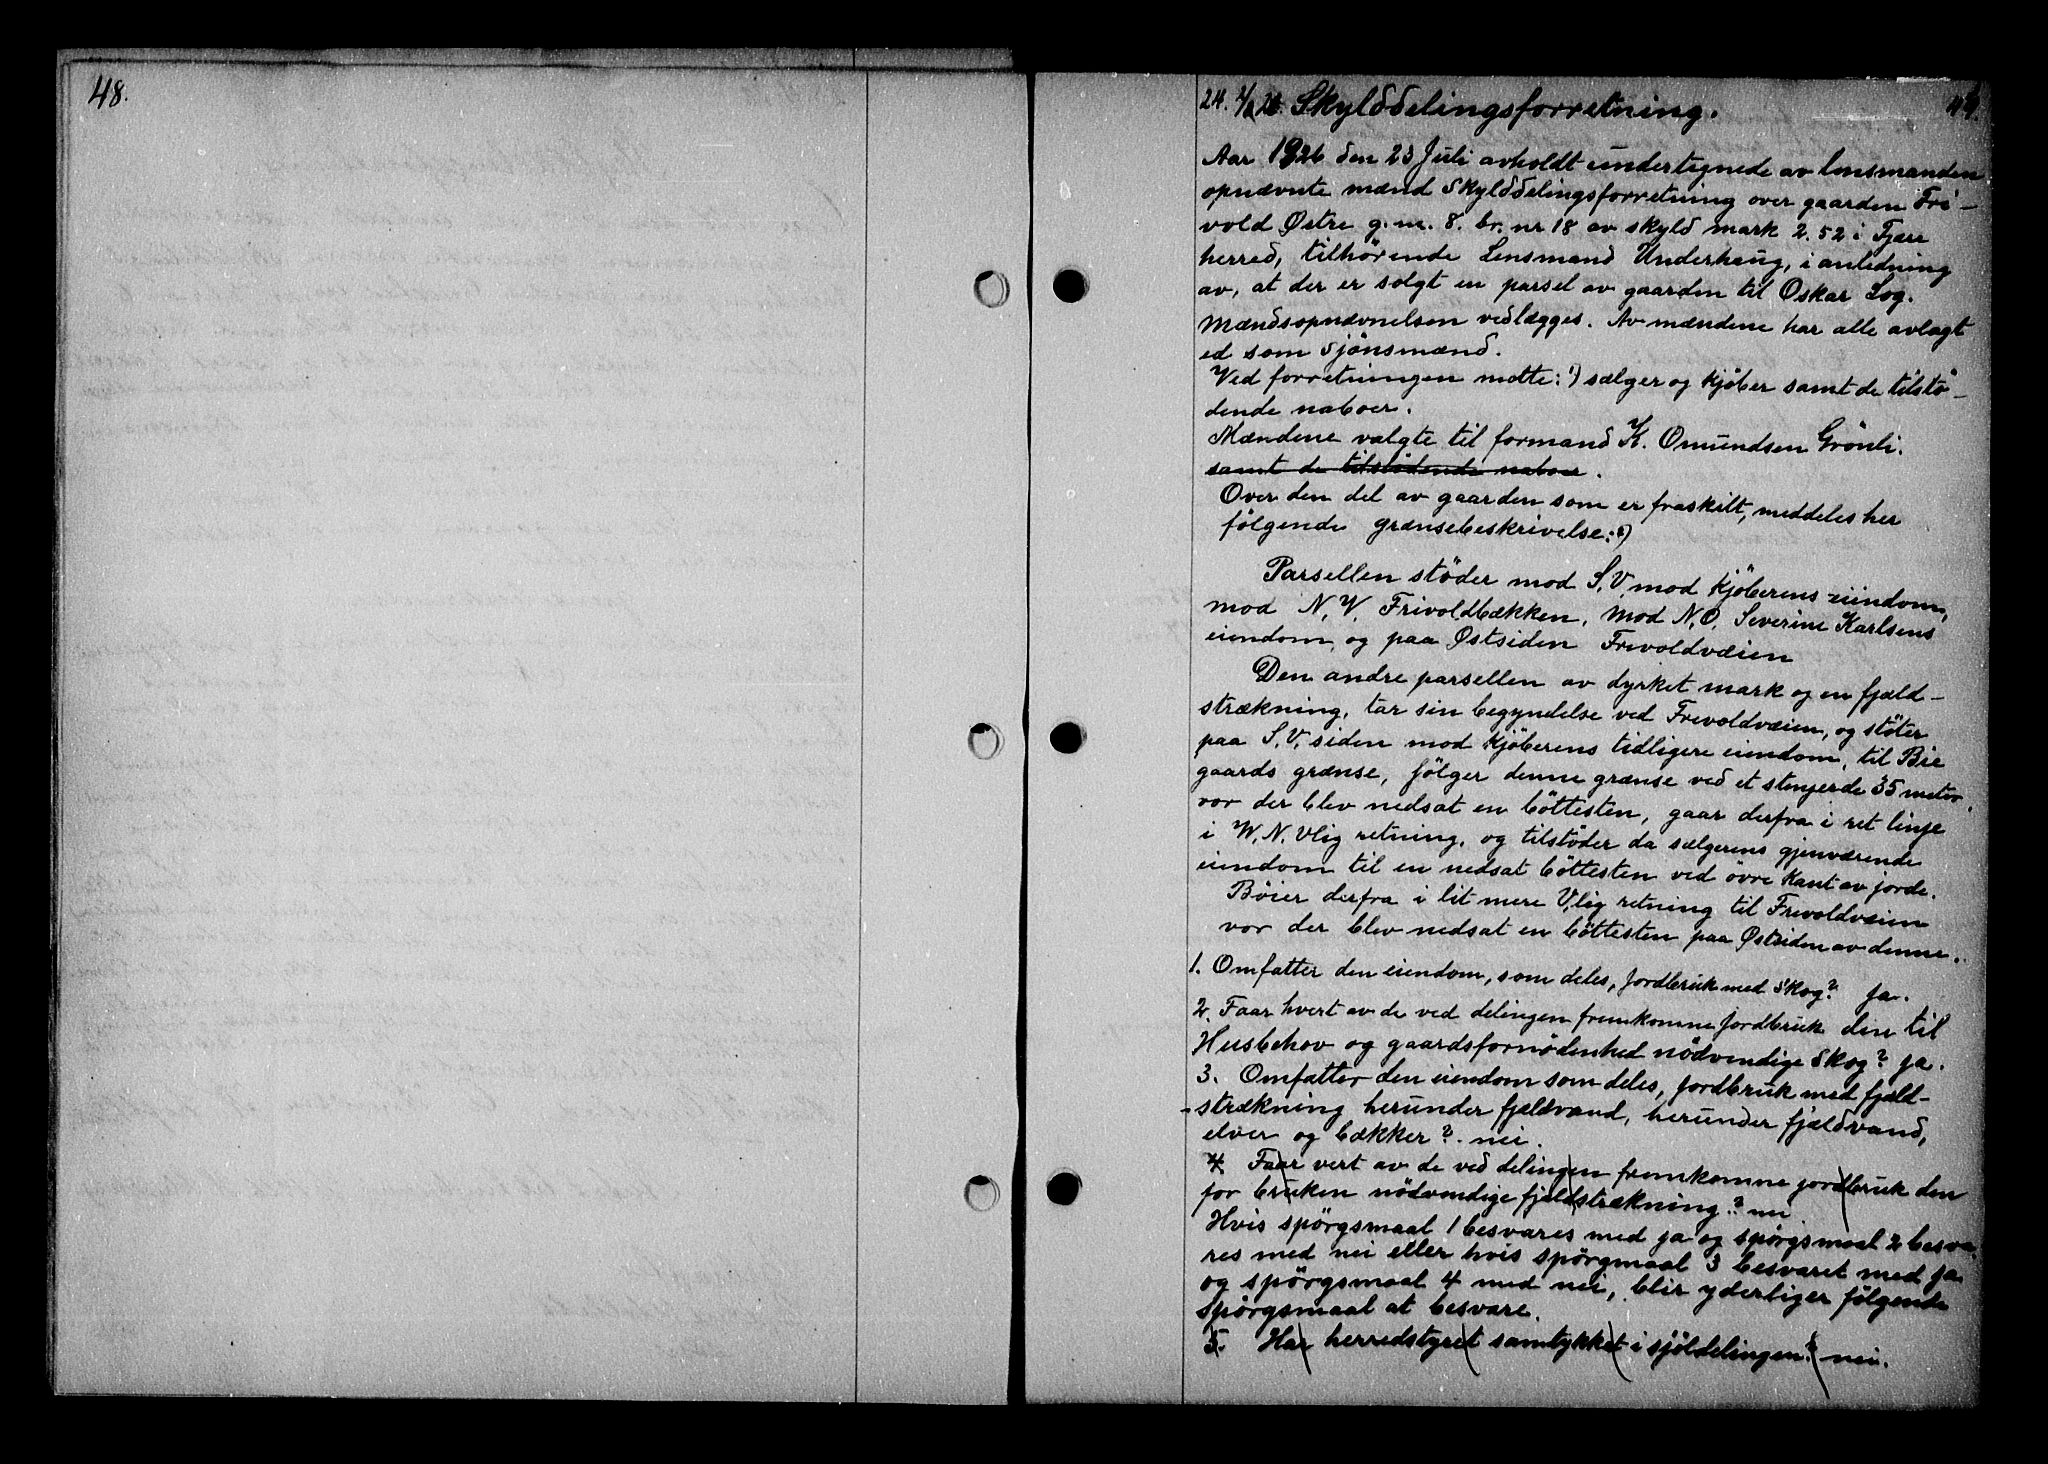 48.
24. 2/8 26. Skylddelingsforretning. 49.
Aar 1926 den 23 Juli avholdt undertegnede av lensmanden
opnævnte mænd skylddelingsforretning over gaarden Fri-
vold Østre g. nr. 8. br. nr 18 av skyld mark 2.52 i Fjære
herred, tilhørende Lensmand Underhaug, i anledning
av, at der er solgt en parsel av gaarden til Oskar Log.
Mændsopnævnelsen vedlægges. Av mændene har alle avlagt
ed som sjönsmænd.
Ved forretningen møtte: 1) sælger og kjøber samt de tilstö-
dende naboer.
Mændene valgte til formand K. Omundsen Grönli.
samt de tilstödende naboer.
Over den del av gaarden som er fraskilt, meddeles her
følgende grænsebeskrivelse: 2)
Parsellen stöder mod S,V, mod kjöberens eiendom,
mod N,V, Frivoldbækken, mod N,O, Severine Karlsens
eiendom, og paa Østsiden Frivoldvæien
Den andre parsellen av dyrket mark og en fjæld-
strækning, tar sin begyndelse ved Frevoldvæien, og støter
paa S,V, siden mod kjöberens tidligere eiendom, til Bie
gaards grænse, følger denne grænse ved et stenjerde 35 meter,
vor der blev nedsat en böttesten, gaar derfra i ret linje
i W,N,Vlig retning, og tilstöder da sælgerens gjenværende
eiendom til en nedsat böttesten ved övre kant av jorde.
Böier derfra i lit mere V,lig retning til Frevoldvæien
vor der blev nedsat en böttesten paa Østsiden av denne.
1. Omfatter den eiendom, som deles, jordbruk med skog? ja.
2. Faar hvert av de ved delingen fremkomne jordbruk den til
Husbehov og gaardsfornödenhed nödvendige skog? ja.
3. Omfatter den eiendom som deles, jordbruk med fjæld-
strækning herunder fjeldvand, herunder fjældvand,
elver og bækker? nei.
4. Faar vert av de ved delingen fremkomne jordbruk den
for bruken nödvendige fjeldstrækning? nei
Hvis spörgsmaal 1 besvares med ja og spörgsmaal 2 besva
res med nei eller hvis spörgmaal 3 besvaret med ja
og spörgsmaal 4 med nei, blir yderliger fölgende
spörgsmaal at besvare.
5. Har herredstyret samtykket i sjöldelingen? nei.